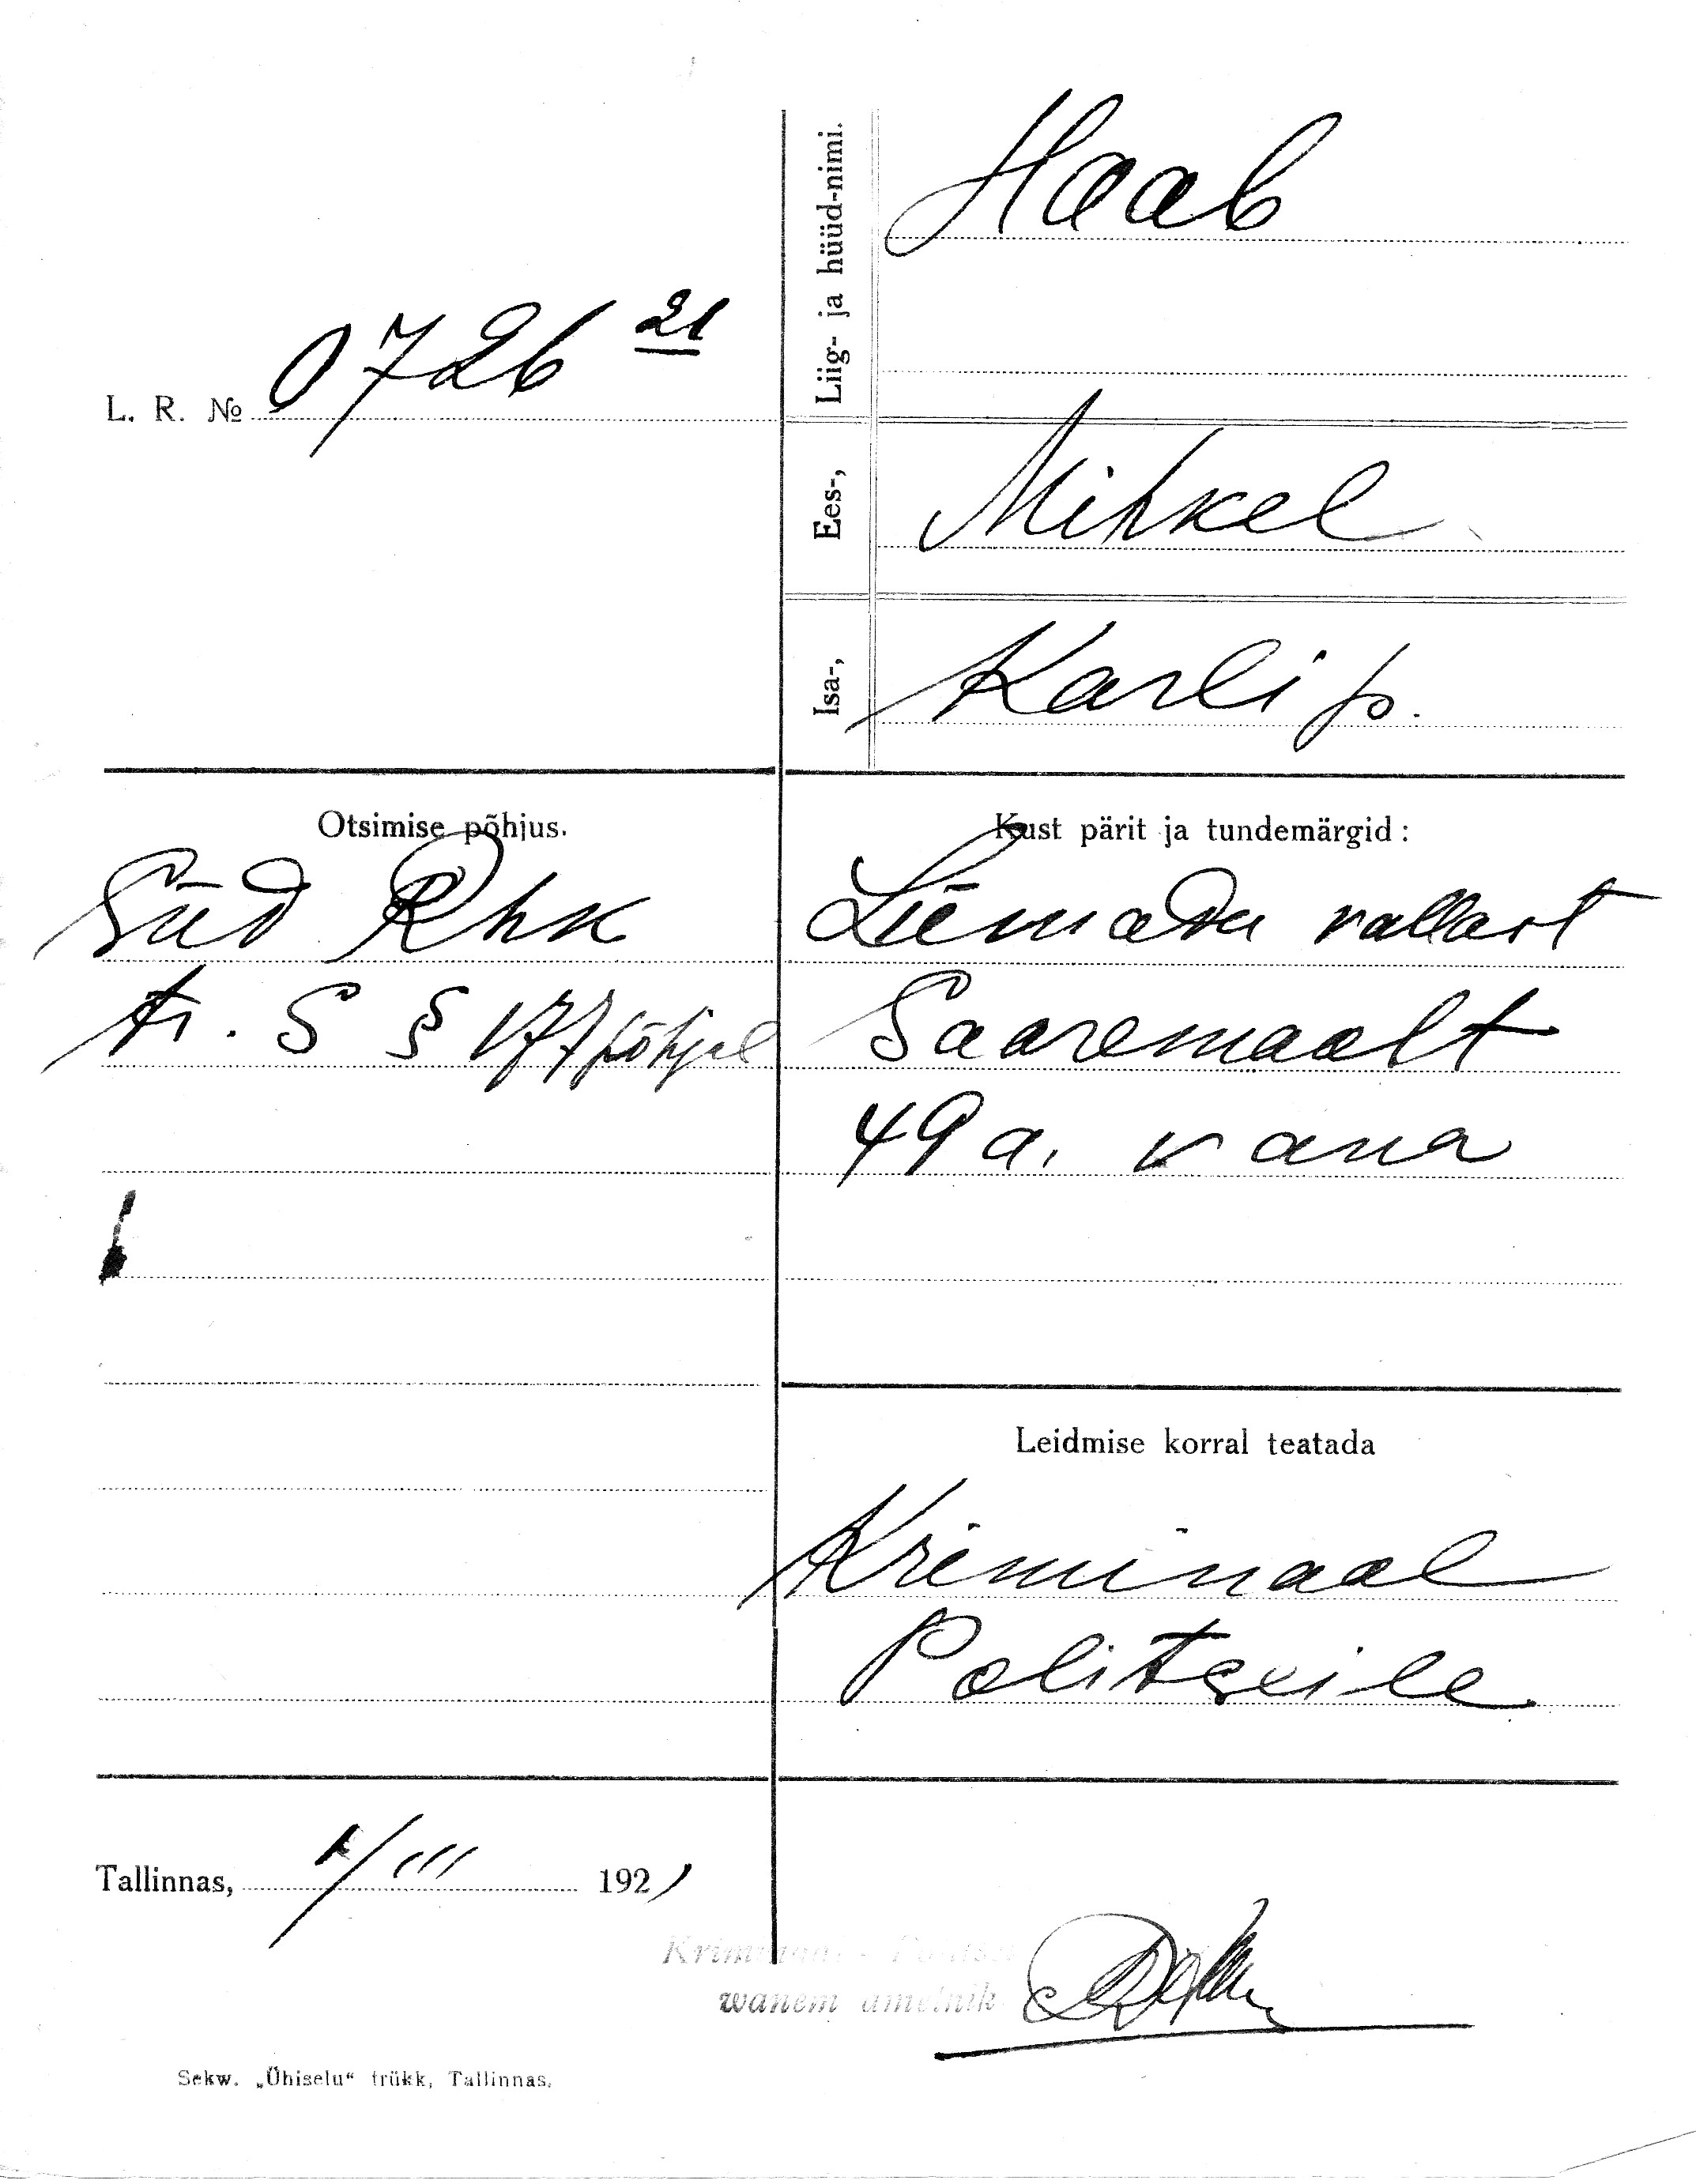 L. R. № 0726 21
Liig- ja hüüd-nimi.
Haab
Ees-,
Mihkel
Isa-,
Karli p.
Otsimise põhjus.
Süd Rhk
tr. S § 177 põhjal
Kust pärit ja tundemärgid:
Lümada vallast
Saaremaalt
49 a. vana
Leidmise korral teatada
Kriminaal
Politseile
Tallinnas, 1/III 1921
Kriminaal-Politsei
wanem ametnik
Sekw. „Ühiselu“ trükk, Tallinnas.